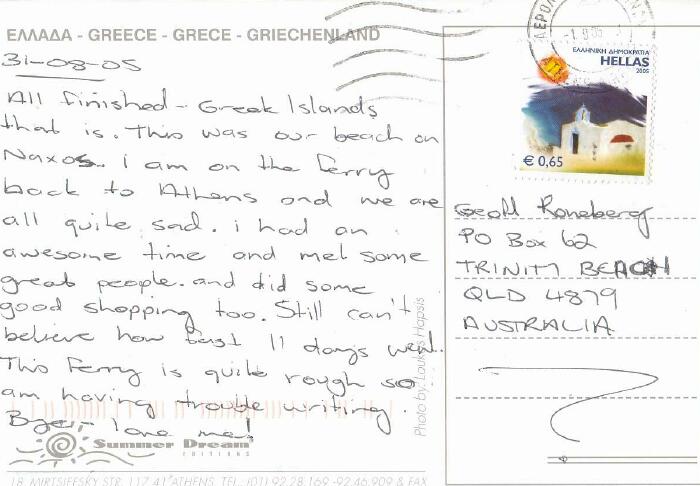 ΕΛΛΑΔΑ - GREECE - GRECE - GRIECHENLAND
31-08-05
All finished - Greek Islands
that is. This was our beach on
Naxos. I am on the ferry
back to Athens and we are
all quite sad. i had an
awesome time and met some
great people. and did some
good shopping too. Still can't
believe how fast 11 days went.
This ferry is quite rough so
am having trouble writing.
Bye - love me!
Summer Dream
EDITIONS
18, MIRTSIEFSKY STR. 117 41 ATHENS, TEL. (01) 92.28.169 - 92.46.909 & FAX
Photo by Loukas Hapsis
ΑΕΡΟΛ
-1.9.05
ΕΛΛΗΝΙΚΗ ΔΗΜΟΚΡΑΤΙΑ
HELLAS
2005
€ 0,65
Geoff Roneberg
PO Box 62
TRINITY BEACH
QLD 4879
AUSTRALIA